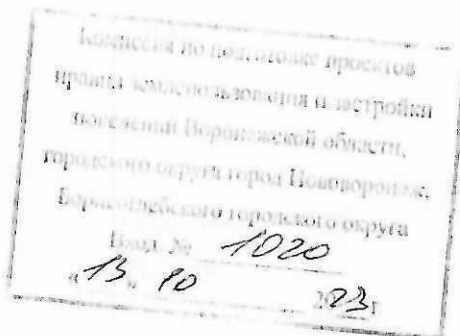 Комиссия по подготовке проектов
правил землепользования и застройки
поселений Воронежской области,
городского округа город Нововоронеж,
Борисоглебского городского округа
Вход. № 1020
«13» 10 2023г